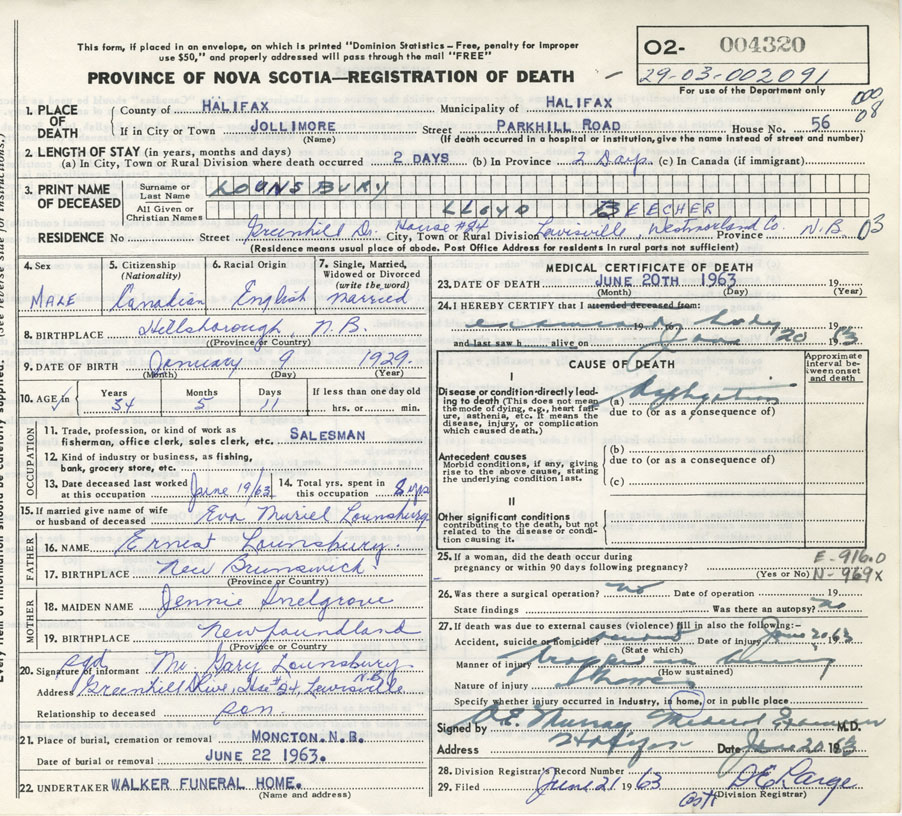 This form, if placed in an envelope, on which is printed "Dominion Statistics – Free, penalty for improper
use $50," and properly addressed will pass through the mail "FREE"
O2- 004320
29-03-002091
For use of the Department only
PROVINCE OF NOVA SCOTIA—REGISTRATION OF DEATH
000
08
1. PLACE OF DEATH
County of HALIFAX Municipality of HALIFAX
If in City or Town JOLLIMORE Street PARKHILL ROAD House No. 56
(Name) (If death occurred in a hospital or institution, give the name instead of street and number)
2. LENGTH OF STAY (in years, months and days)
(a) In City, Town or Rural Division where death occurred 2 DAYS (b) In Province 2 Days (c) In Canada (if immigrant)
3. PRINT NAME OF DECEASED
Surname or Last Name LOUNSBURY
All Given or Christian Names LLOYD BEECHER
RESIDENCE No Street Greenhill Dr. House #24 City, Town or Rural Division Lewisville, Westmorland Co. Province N.B. 03
(Residence means usual place of abode. Post Office Address for residents in rural parts not sufficient)
4. Sex MALE
5. Citizenship (Nationality) Canadian
6. Racial Origin English
7. Single, Married, Widowed or Divorced (write the word) married
8. BIRTHPLACE Hillsborough, N.B.
(Province or Country)
9. DATE OF BIRTH January 9 1929.
(Month) (Day) (Year)
10. AGE Years 34 Months 5 Days 11 If less than one day old hrs. or min.
OCCUPATION
11. Trade, profession, or kind of work as fisherman, office clerk, sales clerk, etc. SALESMAN
12. Kind of industry or business, as fishing, bank, grocery store, etc.
13. Date deceased last worked at this occupation June 19/63
14. Total yrs. spent in this occupation 8 yrs
15. If married give name of wife or husband of deceased Eva Muriel Lounsbury
FATHER
16. NAME Ernest Lounsbury.
17. BIRTHPLACE New Brunswick.
(Province or Country)
MOTHER
18. MAIDEN NAME Jennie Snelgrove
19. BIRTHPLACE Newfoundland
(Province or Country)
20. Signature of informant sgd Mr. Gary Lounsbury
Address Greenhill Drive, Hse #24, Lewisville N.B.
Relationship to deceased son.
21. Place of burial, cremation or removal MONCTON. N.B.
Date of burial or removal JUNE 22 1963.
22. UNDERTAKER WALKER FUNERAL HOME.
(Name and address)
MEDICAL CERTIFICATE OF DEATH
23. DATE OF DEATH JUNE 20TH 1963 19
(Month) (Day) (Year)
24. I HEREBY CERTIFY that I attended deceased from:
examined body
19 to 19
and last saw h alive on June 20 1963
CAUSE OF DEATH
Approximate interval between onset and death
I
Disease or condition directly leading to death (This does not mean the mode of dying, e.g., heart failure, asthenia, etc. It means the disease, injury, or complication which caused death.)
(a) Asphyxiation
due to (or as a consequence of)
Antecedent causes
Morbid conditions, if any, giving rise to the above cause, stating the underlying condition last.
(b)
due to (or as a consequence of)
(c)
II
Other significant conditions contributing to the death, but not related to the disease or condition causing it.
25. If a woman, did the death occur during pregnancy or within 90 days following pregnancy? (Yes or No)
E-916.0
N-969x
26. Was there a surgical operation? no Date of operation 19
State findings Was there an autopsy? no
27. If death was due to external causes (violence) fill in also the following:–
Accident, suicide or homicide? accident Date of injury June 20 63
(State which)
Manner of injury trapped in burning
(How sustained)
Nature of injury home
Specify whether injury occurred in industry, in home, or in public place
Signed by A.E. Murray Medical Examiner M.D.
Address Halifax Date June 20 1963
28. Division Registrar's Record Number
29. Filed June 21 1963 D E Large
(Division Registrar)